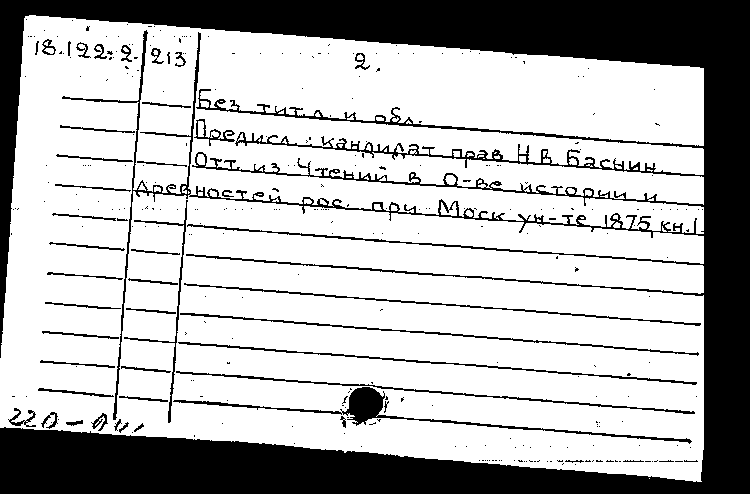 18.122.2. 213 2.
Без тит. л. и обл.
Предисл.: кандидат прав Н В Баснин.
Отт. из Чтений в О-ве истории и
древностей рос. при Моск ун-те, 1875, кн. 1.
220-